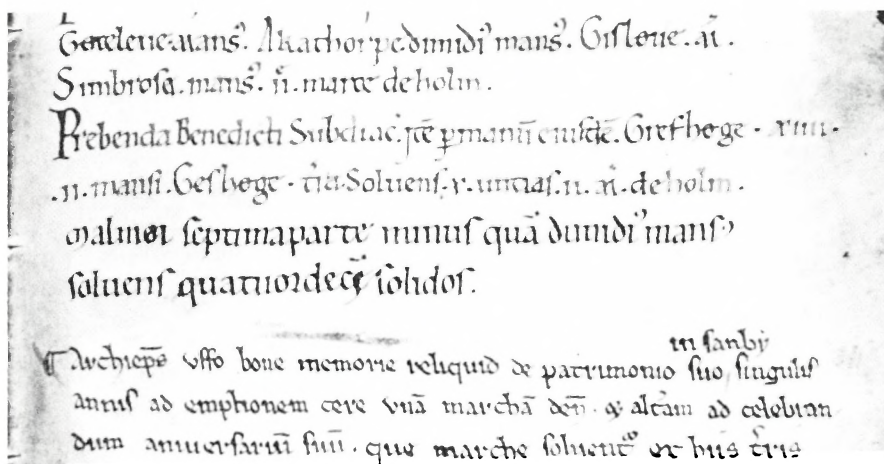 Goteleue. ai mansꝰ. Akathorpe dimidiꝰ mansꝰ. Gisloue. ai.
Simbrosa. mansꝰ. ii. marce de holm.
Prebenda Benedicti Subdiac̄. itē ꝑ manū eiusdē. Grefhoge. xiiii.
.ii. mansi. Geshoge. t̄ia. Soluens. x. untias. ii. de holm.
Malmoi septima parte minus quā dimidiꝰ mansꝰ
soluens quatuordecī solidos.
in sanby
¶ Archiep̄s vffo bone memorie reliquid de patrimonio suo, singulis
annis ad emptionem cere vnā marchā den̄. & alt̄am ad celebran
dum aniuersariū suū. que marche soluent᷑ ex hiis t̄ris